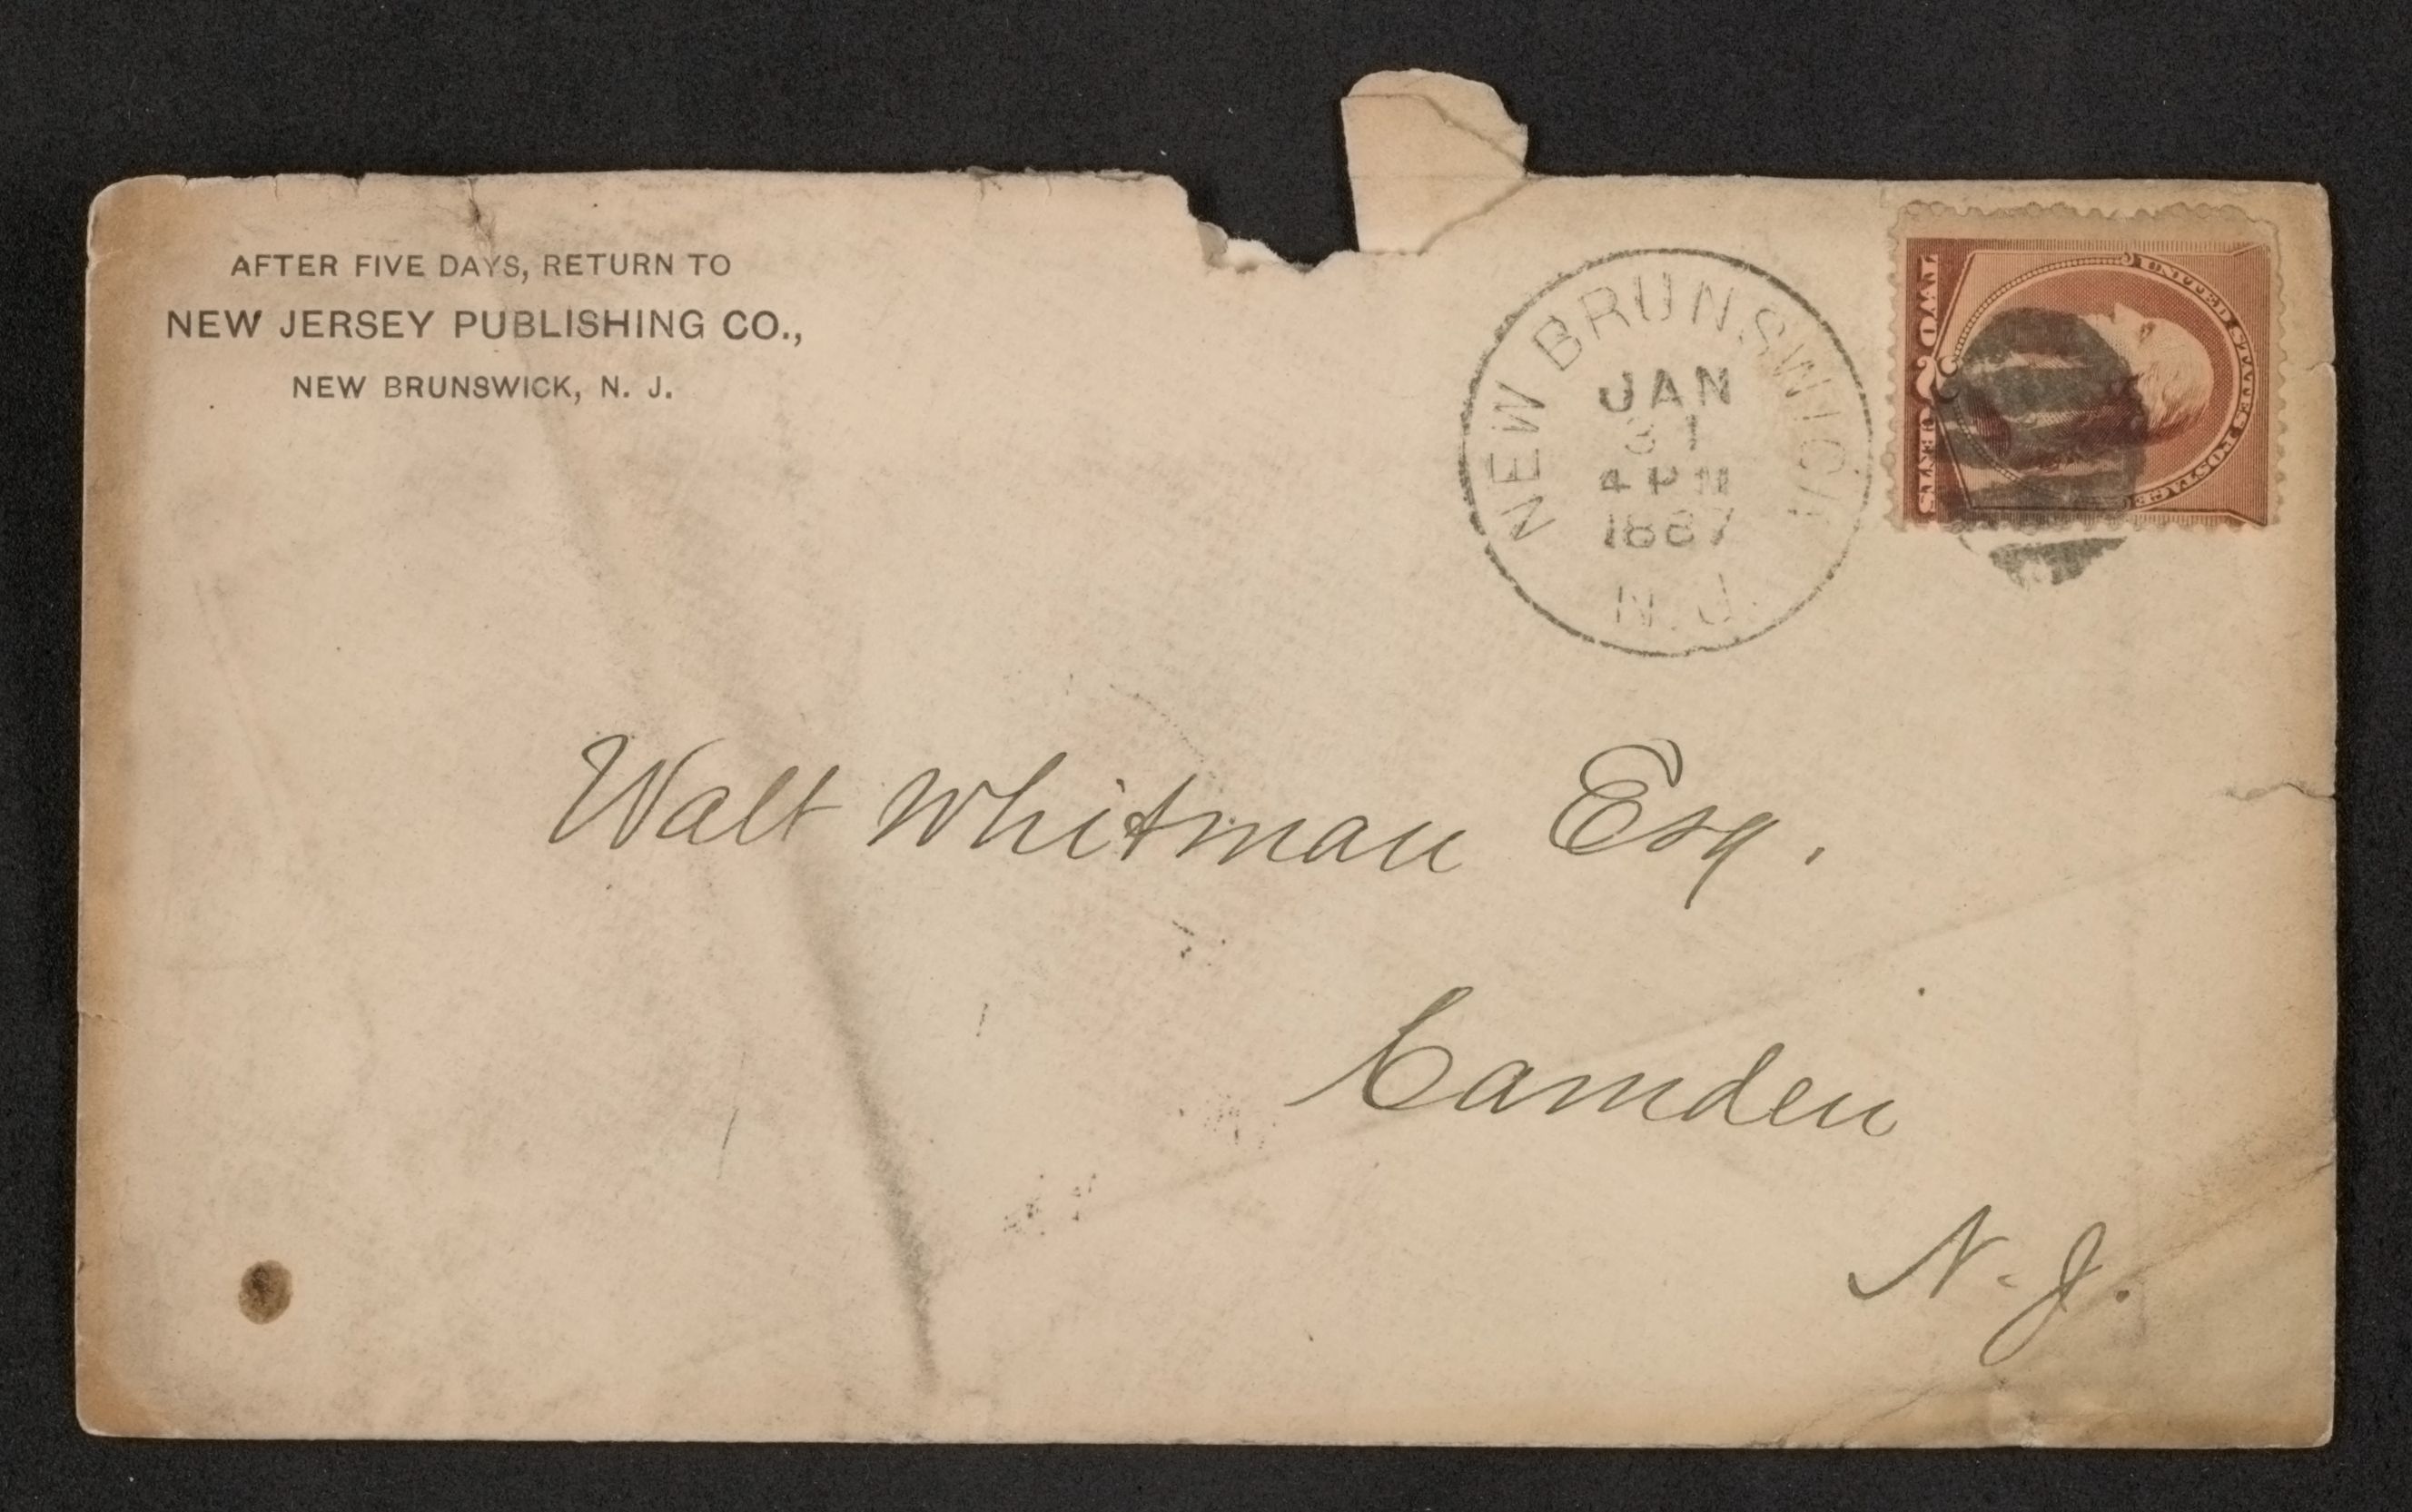 AFTER FIVE DAYS, RETURN TO
NEW JERSEY PUBLISHING CO.,
NEW BRUNSWICK, N. J.
NEW BRUNSWICK
JAN
31
4 PM
1887
N.J.
UNITED STATES POSTAGE
TWO 2 CENTS
Walt Whitman Esq.
Camden
N. J.